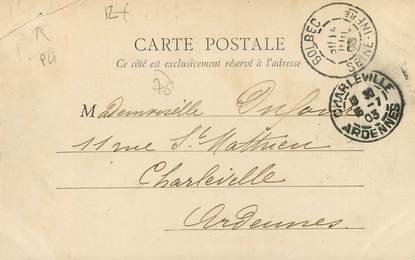 12€
CARTE POSTALE
Ce côté est exclusivement réservé à l'adresse
78
BOLBEC
SEINE-INFRE
CHARLEVILLE
ARDENNES
Mademoiselle Dufour
11 rue St Mathieu
Charleville
Ardennes